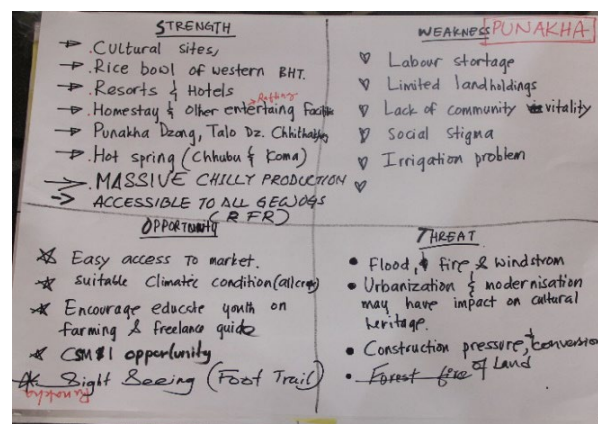 STRENGTH
.Cultural sites,
.Rice bowl of western BHT.
.Resorts & Hotels
Rafting
.Homestay & other entertaing
Punakha Dzong, Talo Dz.
Hot spring (Chhubu & Koma)
.MASSIVE CHILLY PRODUCTION
ACCESSIBLE TO ALL GEWOGS
(RFR)
WEAKNESS
PUNAKHA
Labour stortage
Limited landholdings
Lack of community vitality
Social stigma
Irrigation problem
OPPORTUNITY
Easy access to market.
suitable Climatic condition(allcrop)
Encourage educate youth on
farming & freelance guide
opportunity
Sight Seeing (Foot Trail)
Punakha
THREAT
Flood, fire & windstrom
Urbanization & modernisation
may have impact on cultural
heritage.
Construction pressure, + conversion
of Land
Forest fire